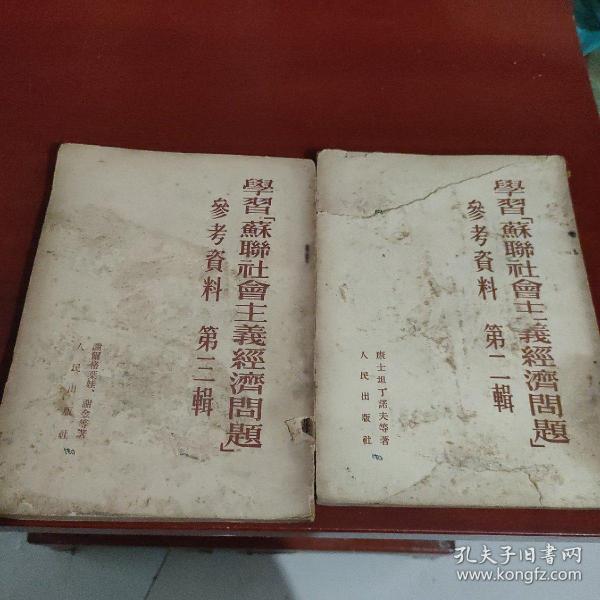 學習「蘇聯社會主義經濟問題」
參考資料 第三輯
謝爾格葉娃、謝登等著
人民出版社
學習「蘇聯社會主義經濟問題」
參考資料 第二輯
康士坦丁諾夫等著
人民出版社
孔夫子旧书网
www.kongfz.com